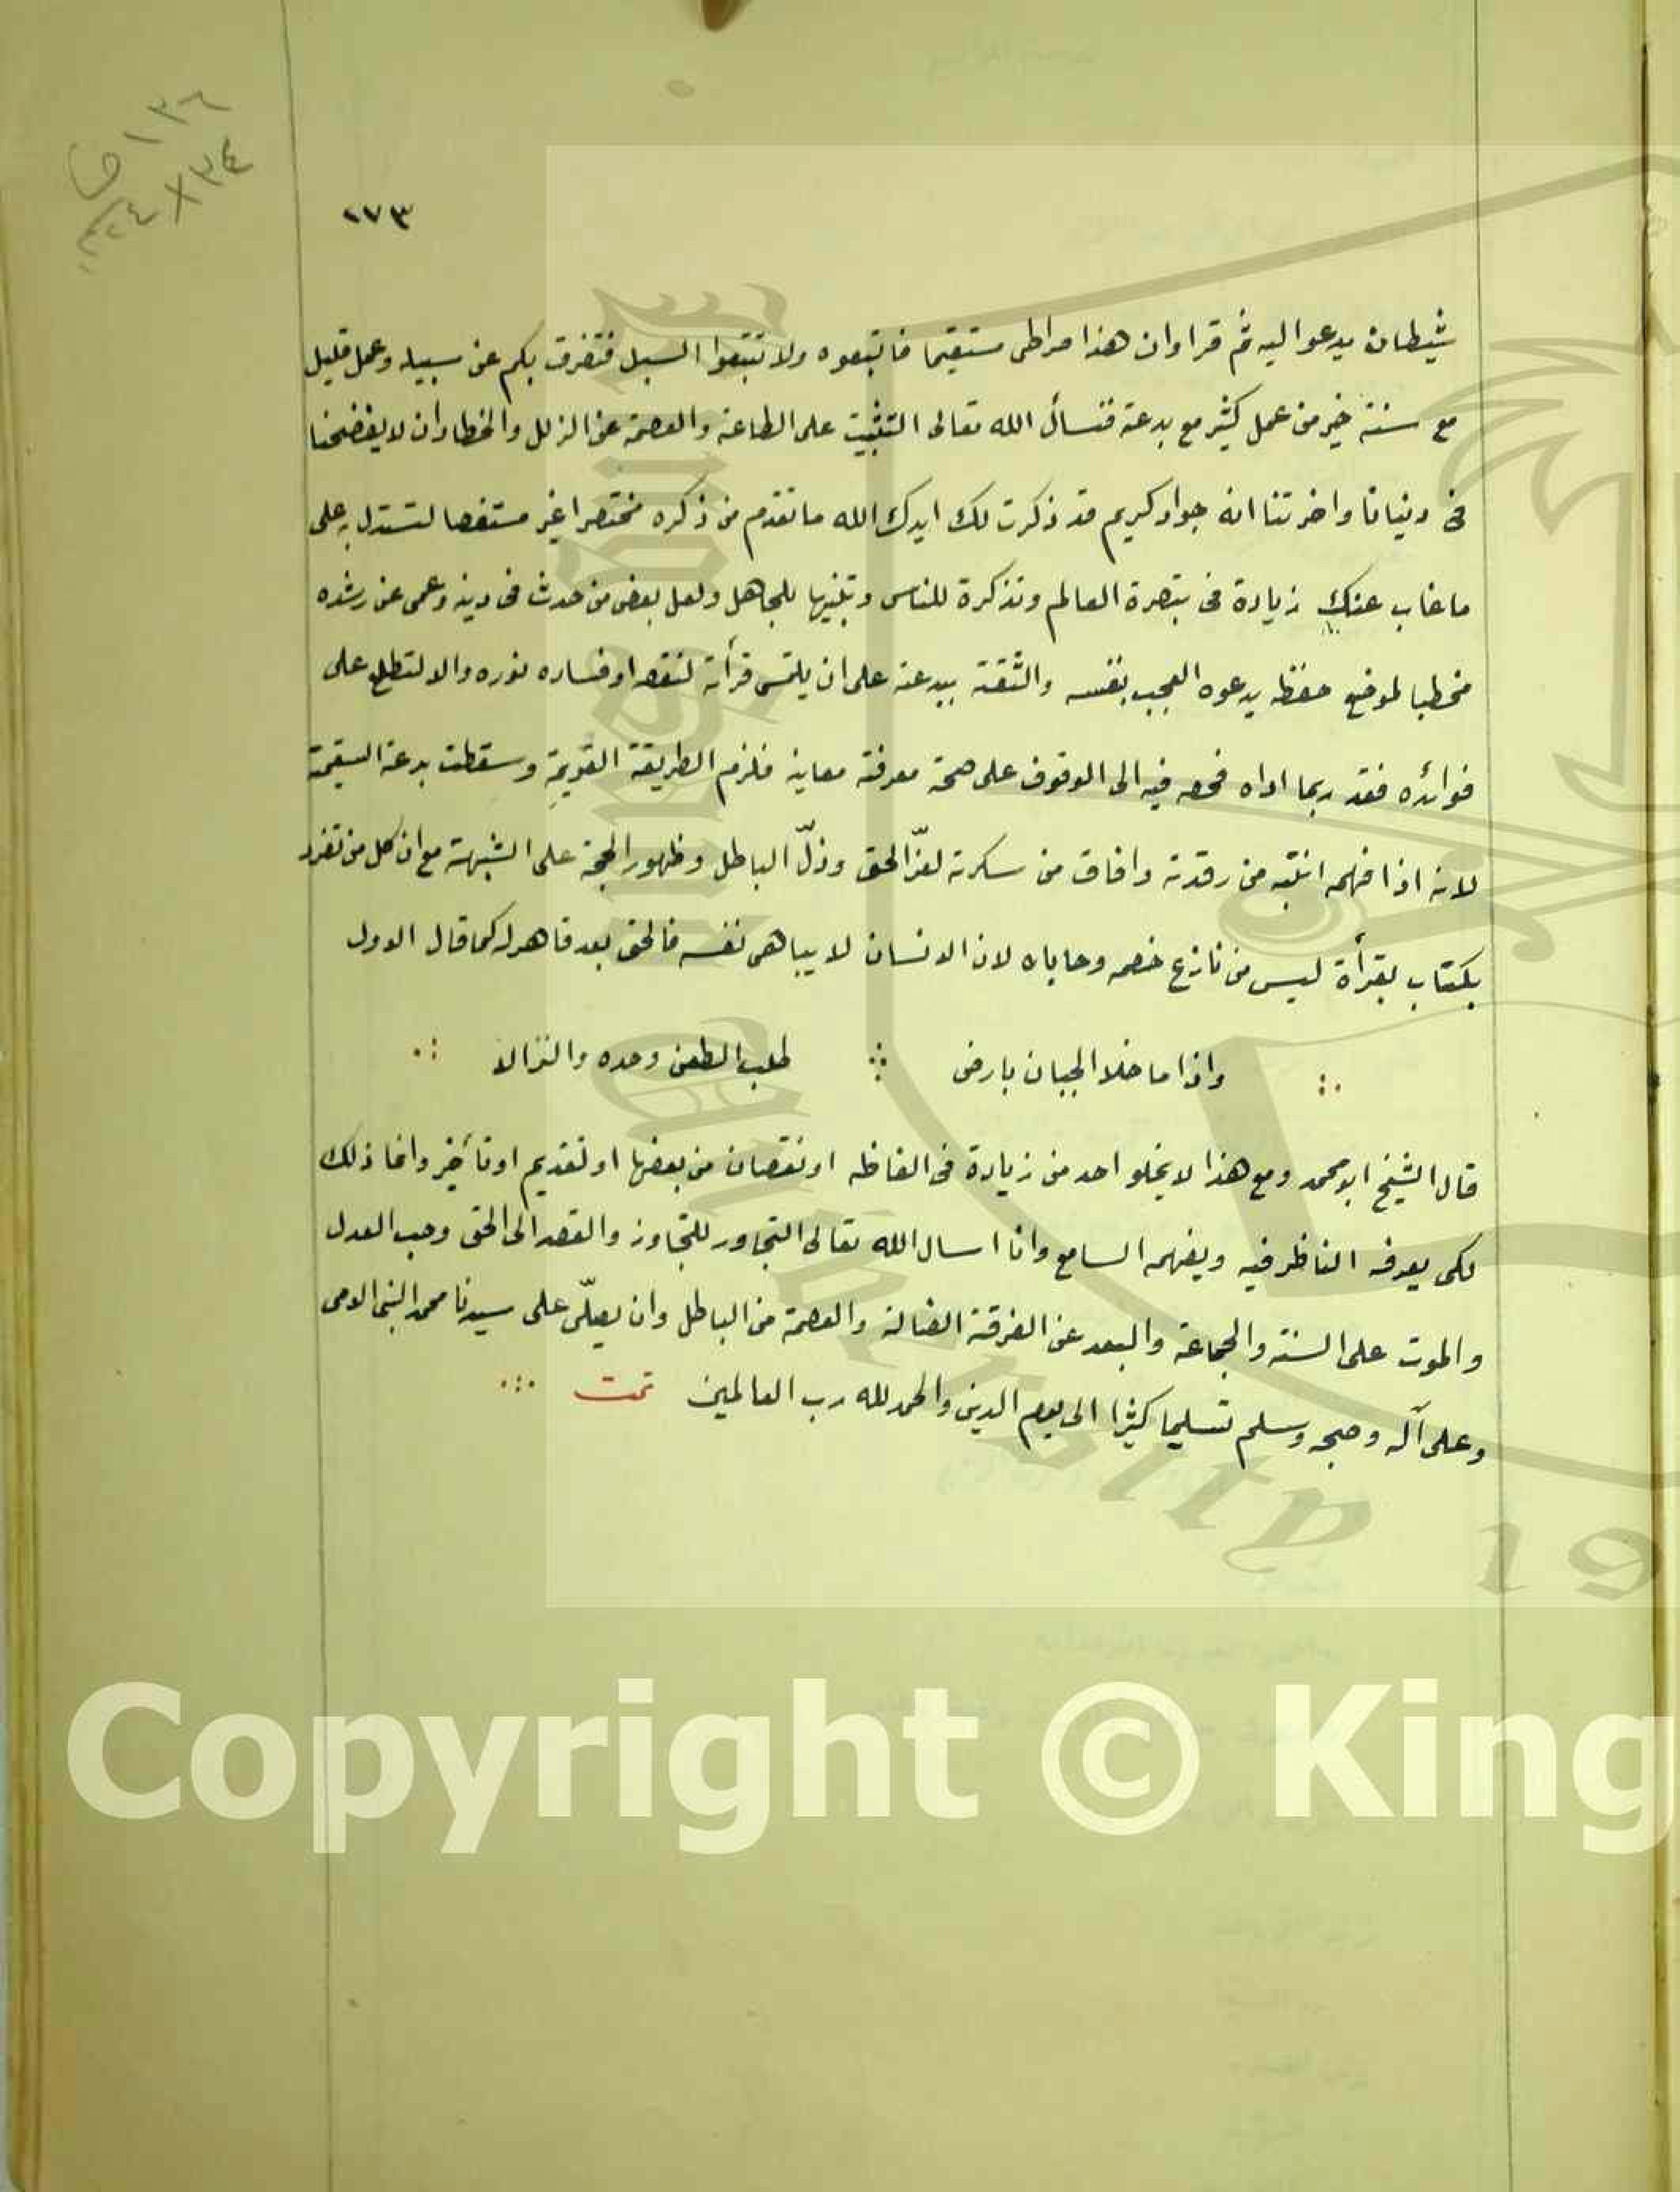 ١٣٦ ق
٣٤×٢٤ سم
٢٧٣
شيطان يدعو اليه ثم قرا وان هذا صراطى مستقيما فاتبعوه ولا تتبعوا السبل فتفرق بكم عن سبيله وعمل قليل
مع سنة خير من عمل كثير مع بدعة فنسأل الله تعالى التثبيت على الطاعة والعصمة عن الزلل والخطا وان لا يفضحنا
فى دنيانا واخرتنا انه جواد كريم قد ذكرت لك ايدك الله ما تقدم من ذكره مختصرا غير مستقصا لتستدل به على
ما غاب عنك زيادة فى تبصرة العالم وتذكرة للناس وتنبيها للجاهل ولعل بعض من حدث فى دينه وعمى عن رشده
مخطيا لموضع حفظه يدعوه العجب بنفسه والثقة ببدعته على ان يلتمس قرأته لنقصه او فساده نوره والا لتطلع على
فوائده فقد ربما اداه فحصه فيه الى الوقوف على صحة معرفة معاينه فلزم الطريقة القويمة وسقطت بدعة السقيمة
لانه اذا فهمه انتبه من رقدته وافاق من سكرته لعزّ الحق وذلّ الباطل وظهور الحجة على الشبهة مع ان كل من تفرد
بكتاب بقرأة ليس من نازع خصمه وحاباه لان الانسان لا يباهى نفسه فالحق بعد قاهر له كما قال الاول
واذا ما خلا الجبان بارض ∴ طلب الطعن وحده والنزالا
قال الشيخ ابو محمد ومع هذا لا يخلو احد من زيادة فى الفاظه او نقصان من بعضها او تقديم او تأخير وانما ذلك
لكى يعرفه الناظر فيه ويفهمه السامع وانا اسال الله تعالى التجاور للتجاوز والقصد الى الحق وحب العدل
والموت على السنة والجماعة والبعد عن الفرقة الضالة والعصمة من الباطل وان يصلّى على سيدنا محمد النبى الامى
وعلى آله وصحبه وسلم تسليما كثيرا الى يوم الدين والحمد لله رب العالمين تمت
Copyright © King